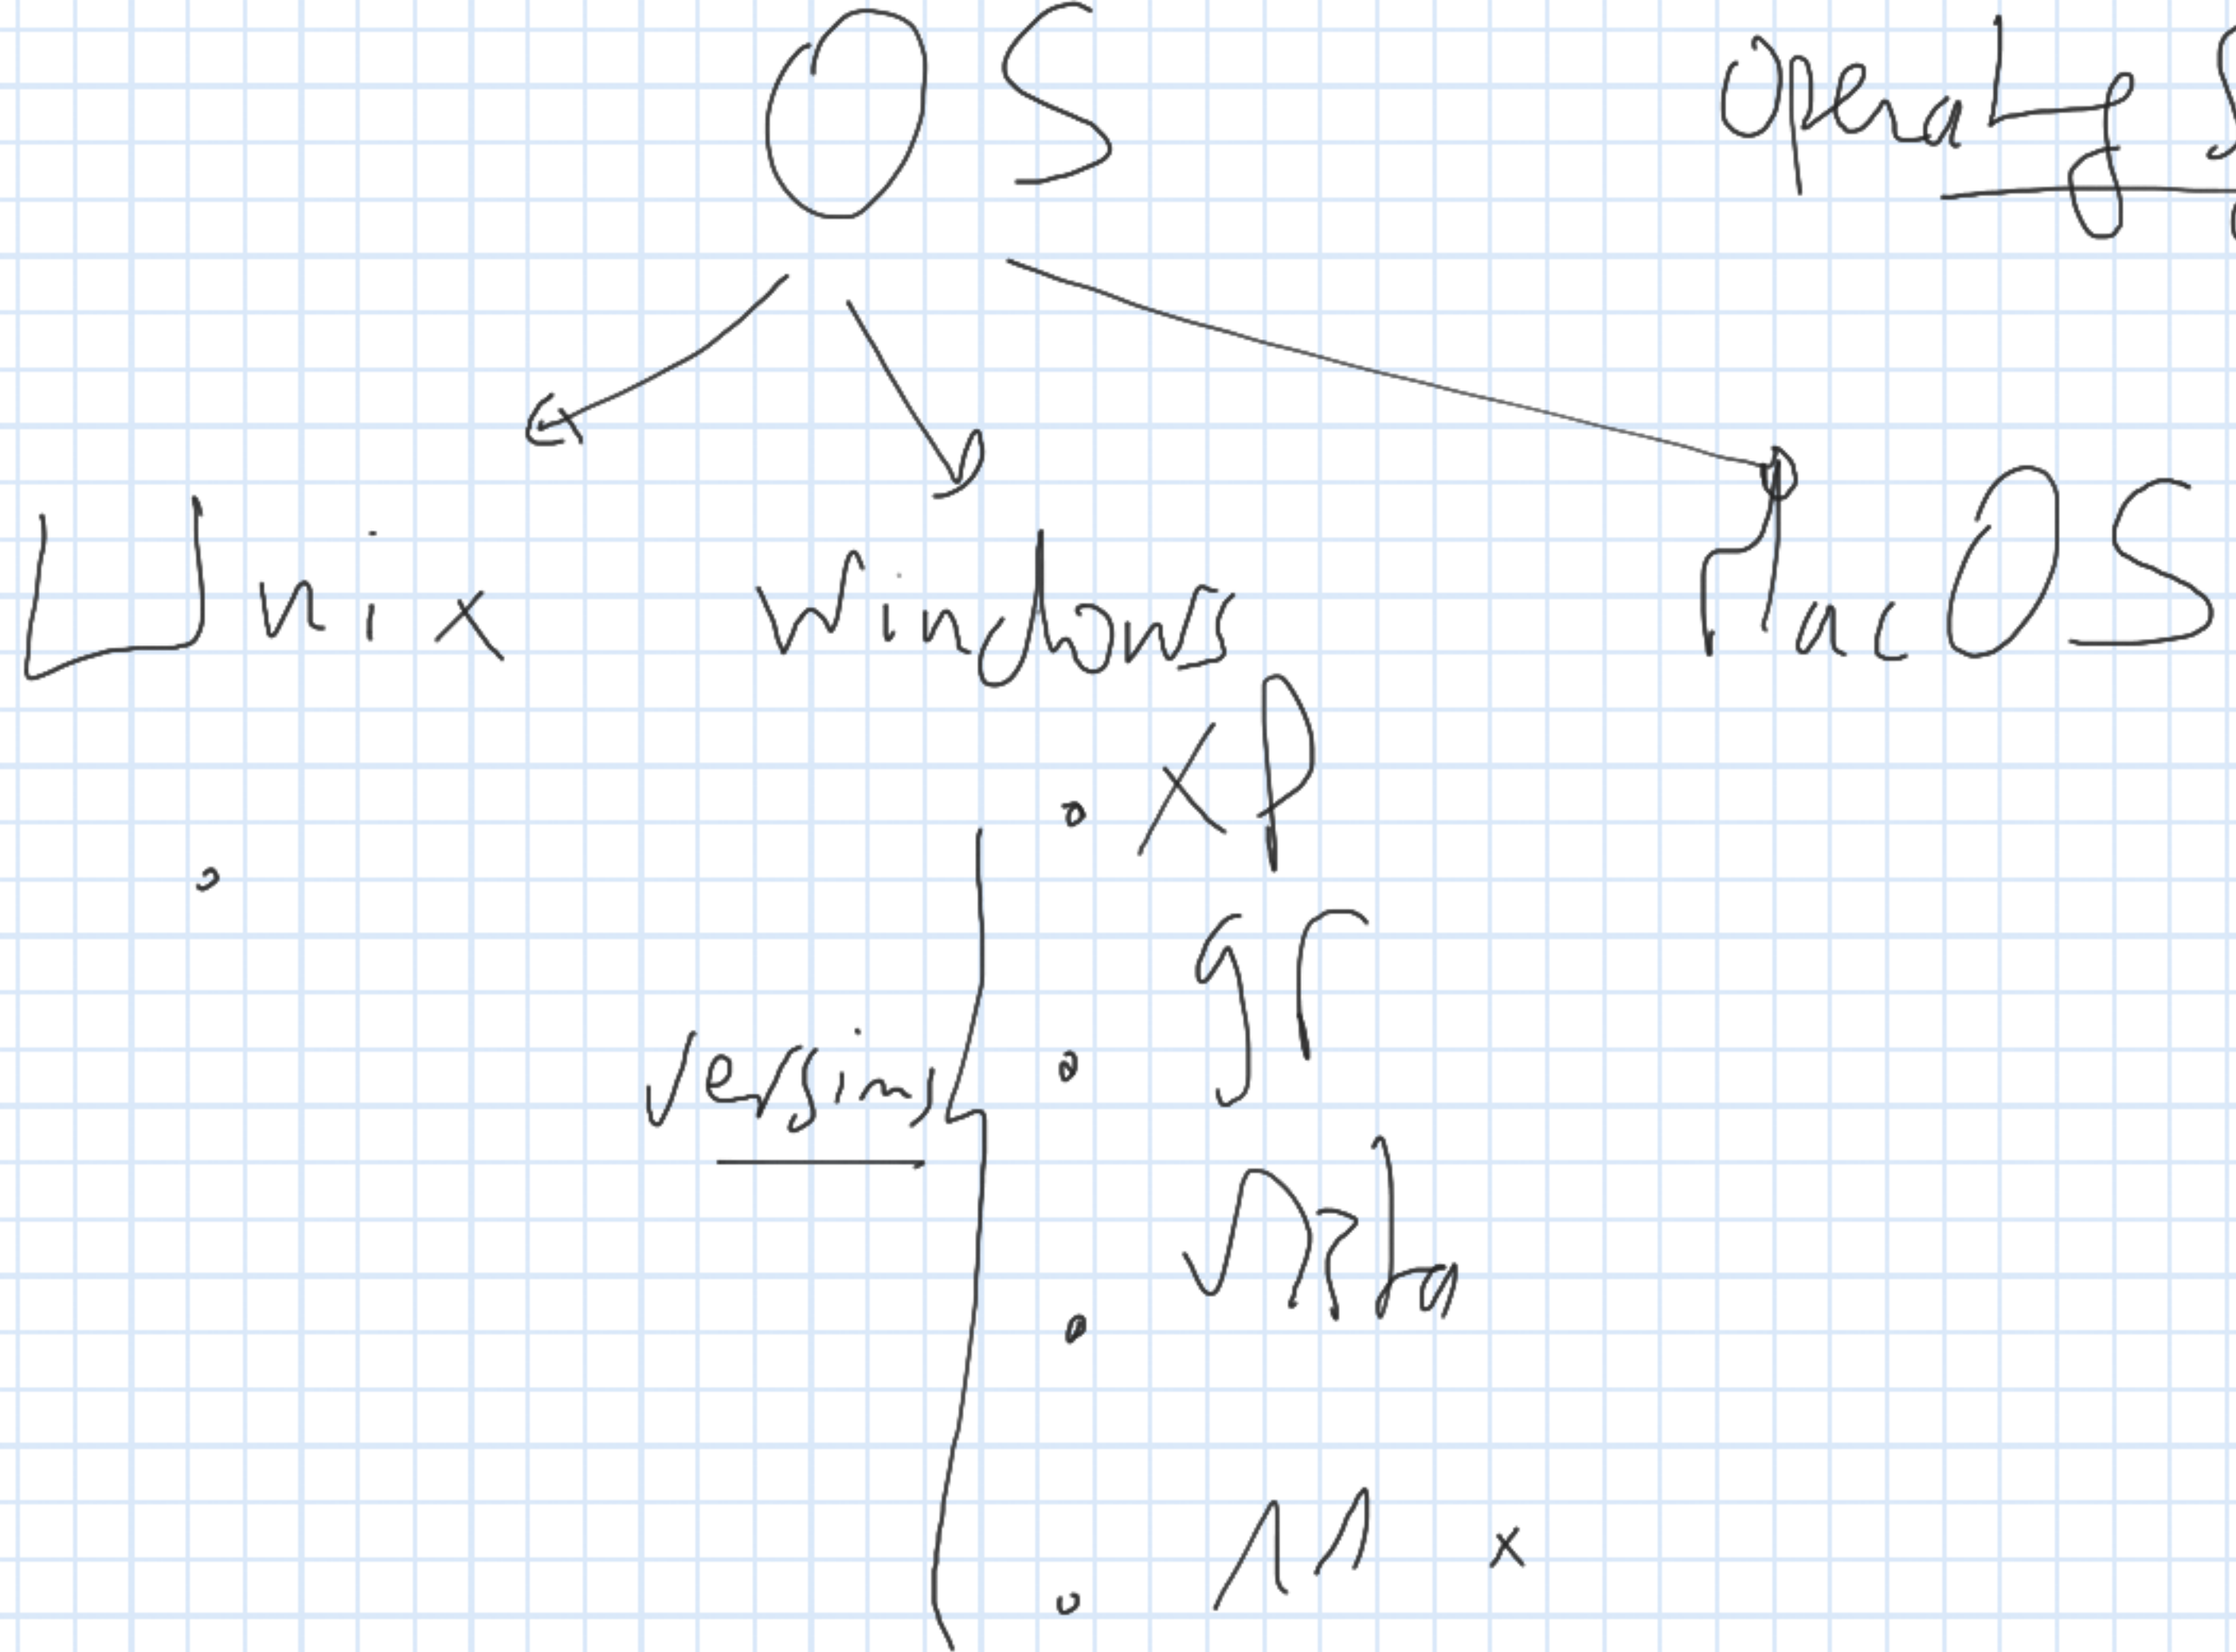 OS
Operating
Unix Windows MacOS
XP
95
Versions
Vista
11 x